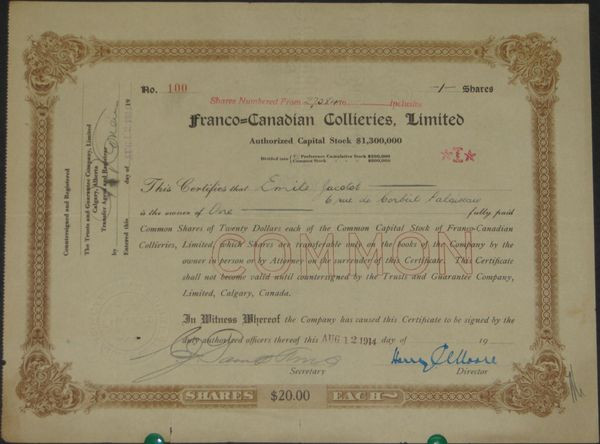 No. 100 -1- Shares
Shares Numbered From 27084 to Inclusive
Franco=Canadian Collieries, Limited
Authorized Capital Stock $1,300,000
Divided into Preference Cumulative Stock
Common Stock
This Certifies that Emile Jacolot
6 rue de Corbeil Palaiseau
is the owner of One fully paid
Common Shares of Twenty Dollars each of the Common Capital Stock of Franco-Canadian
Collieries, Limited, which Shares are transferable only on the books of the Company by the
owner in person or by Attorney on the surrender of this Certificate. This Certificate
shall not become valid until countersigned by the Trusts and Guarantee Company,
Limited, Calgary, Canada.
COMMON
In Witness Whereof the Company has caused this Certificate to be signed by the
duly authorized officers thereof this AUG 12 1914 day of 19
Harry C Moore
Secretary Director
SHARES $20.00 EACH
Countersigned and Registered
The Trusts and Guarantee Company, Limited
Calgary, Alberta
Transfer Agent and Registrar
Entered this day of 19